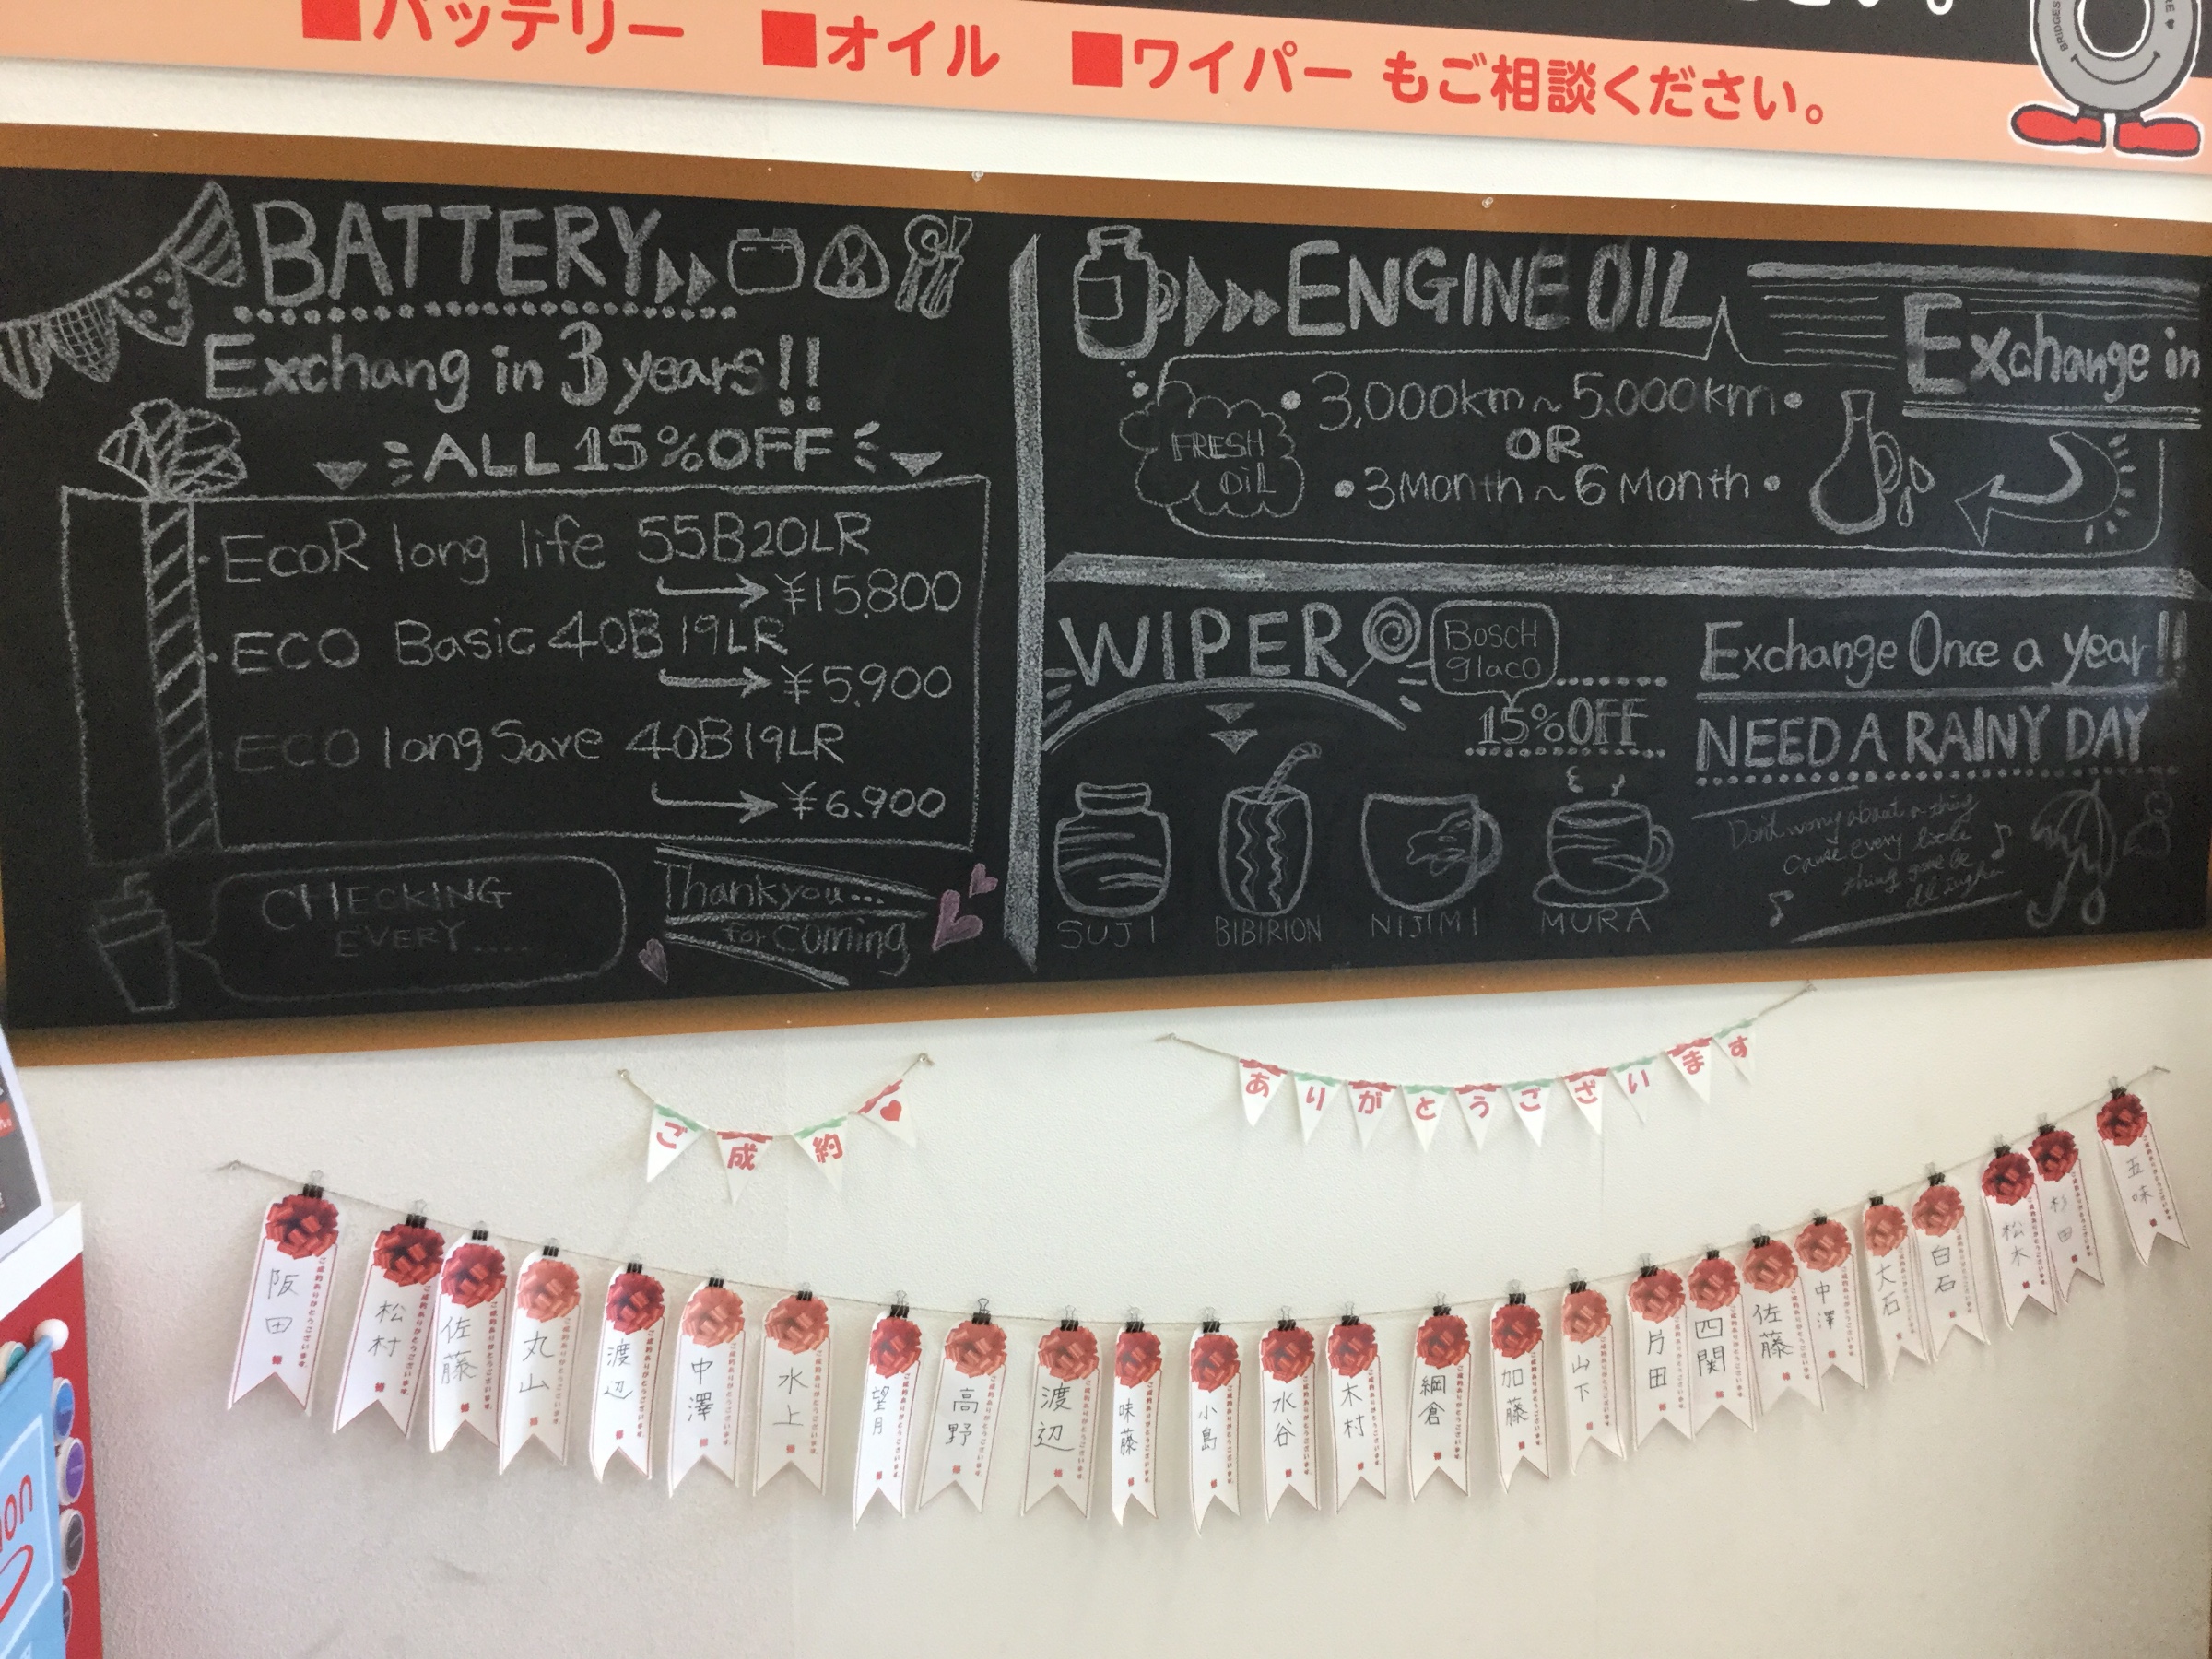 ■バッテリー ■オイル ■ワイパー もご相談ください。
BATTERY
Exchang in 3 years!!
ALL 15%OFF
EcoR long life 55B20LR
¥15.800
ECO Basic 40B19LR
¥5.900
ECO long Save 40B19LR
¥6.900
CHECKING
EVERY.....
Thankyou...
for coming
ENGINE OIL
Exchange in
3,000km~5.000km
OR
3Month~6Month
FRESH
OIL
WIPER
BOSCH
glaco
15%OFF
SUJI
BIBIRION
NIJIMI
MURA
Exchange Once a year!!
NEED A RAINY DAY
Don't worry about a thing
cause every little
thing gone be
ご成約
ありがとうございます
阪田 様
松村 様
佐藤 様
丸山 様
渡辺 様
中澤 様
水上 様
望月 様
高野 様
渡辺 様
味藤 様
小島 様
水谷 様
木村 様
綱倉 様
加藤 様
山下 様
片田 様
四関 様
佐藤 様
中澤 様
大石 様
白石 様
松木 様
杉田 様
五味 様